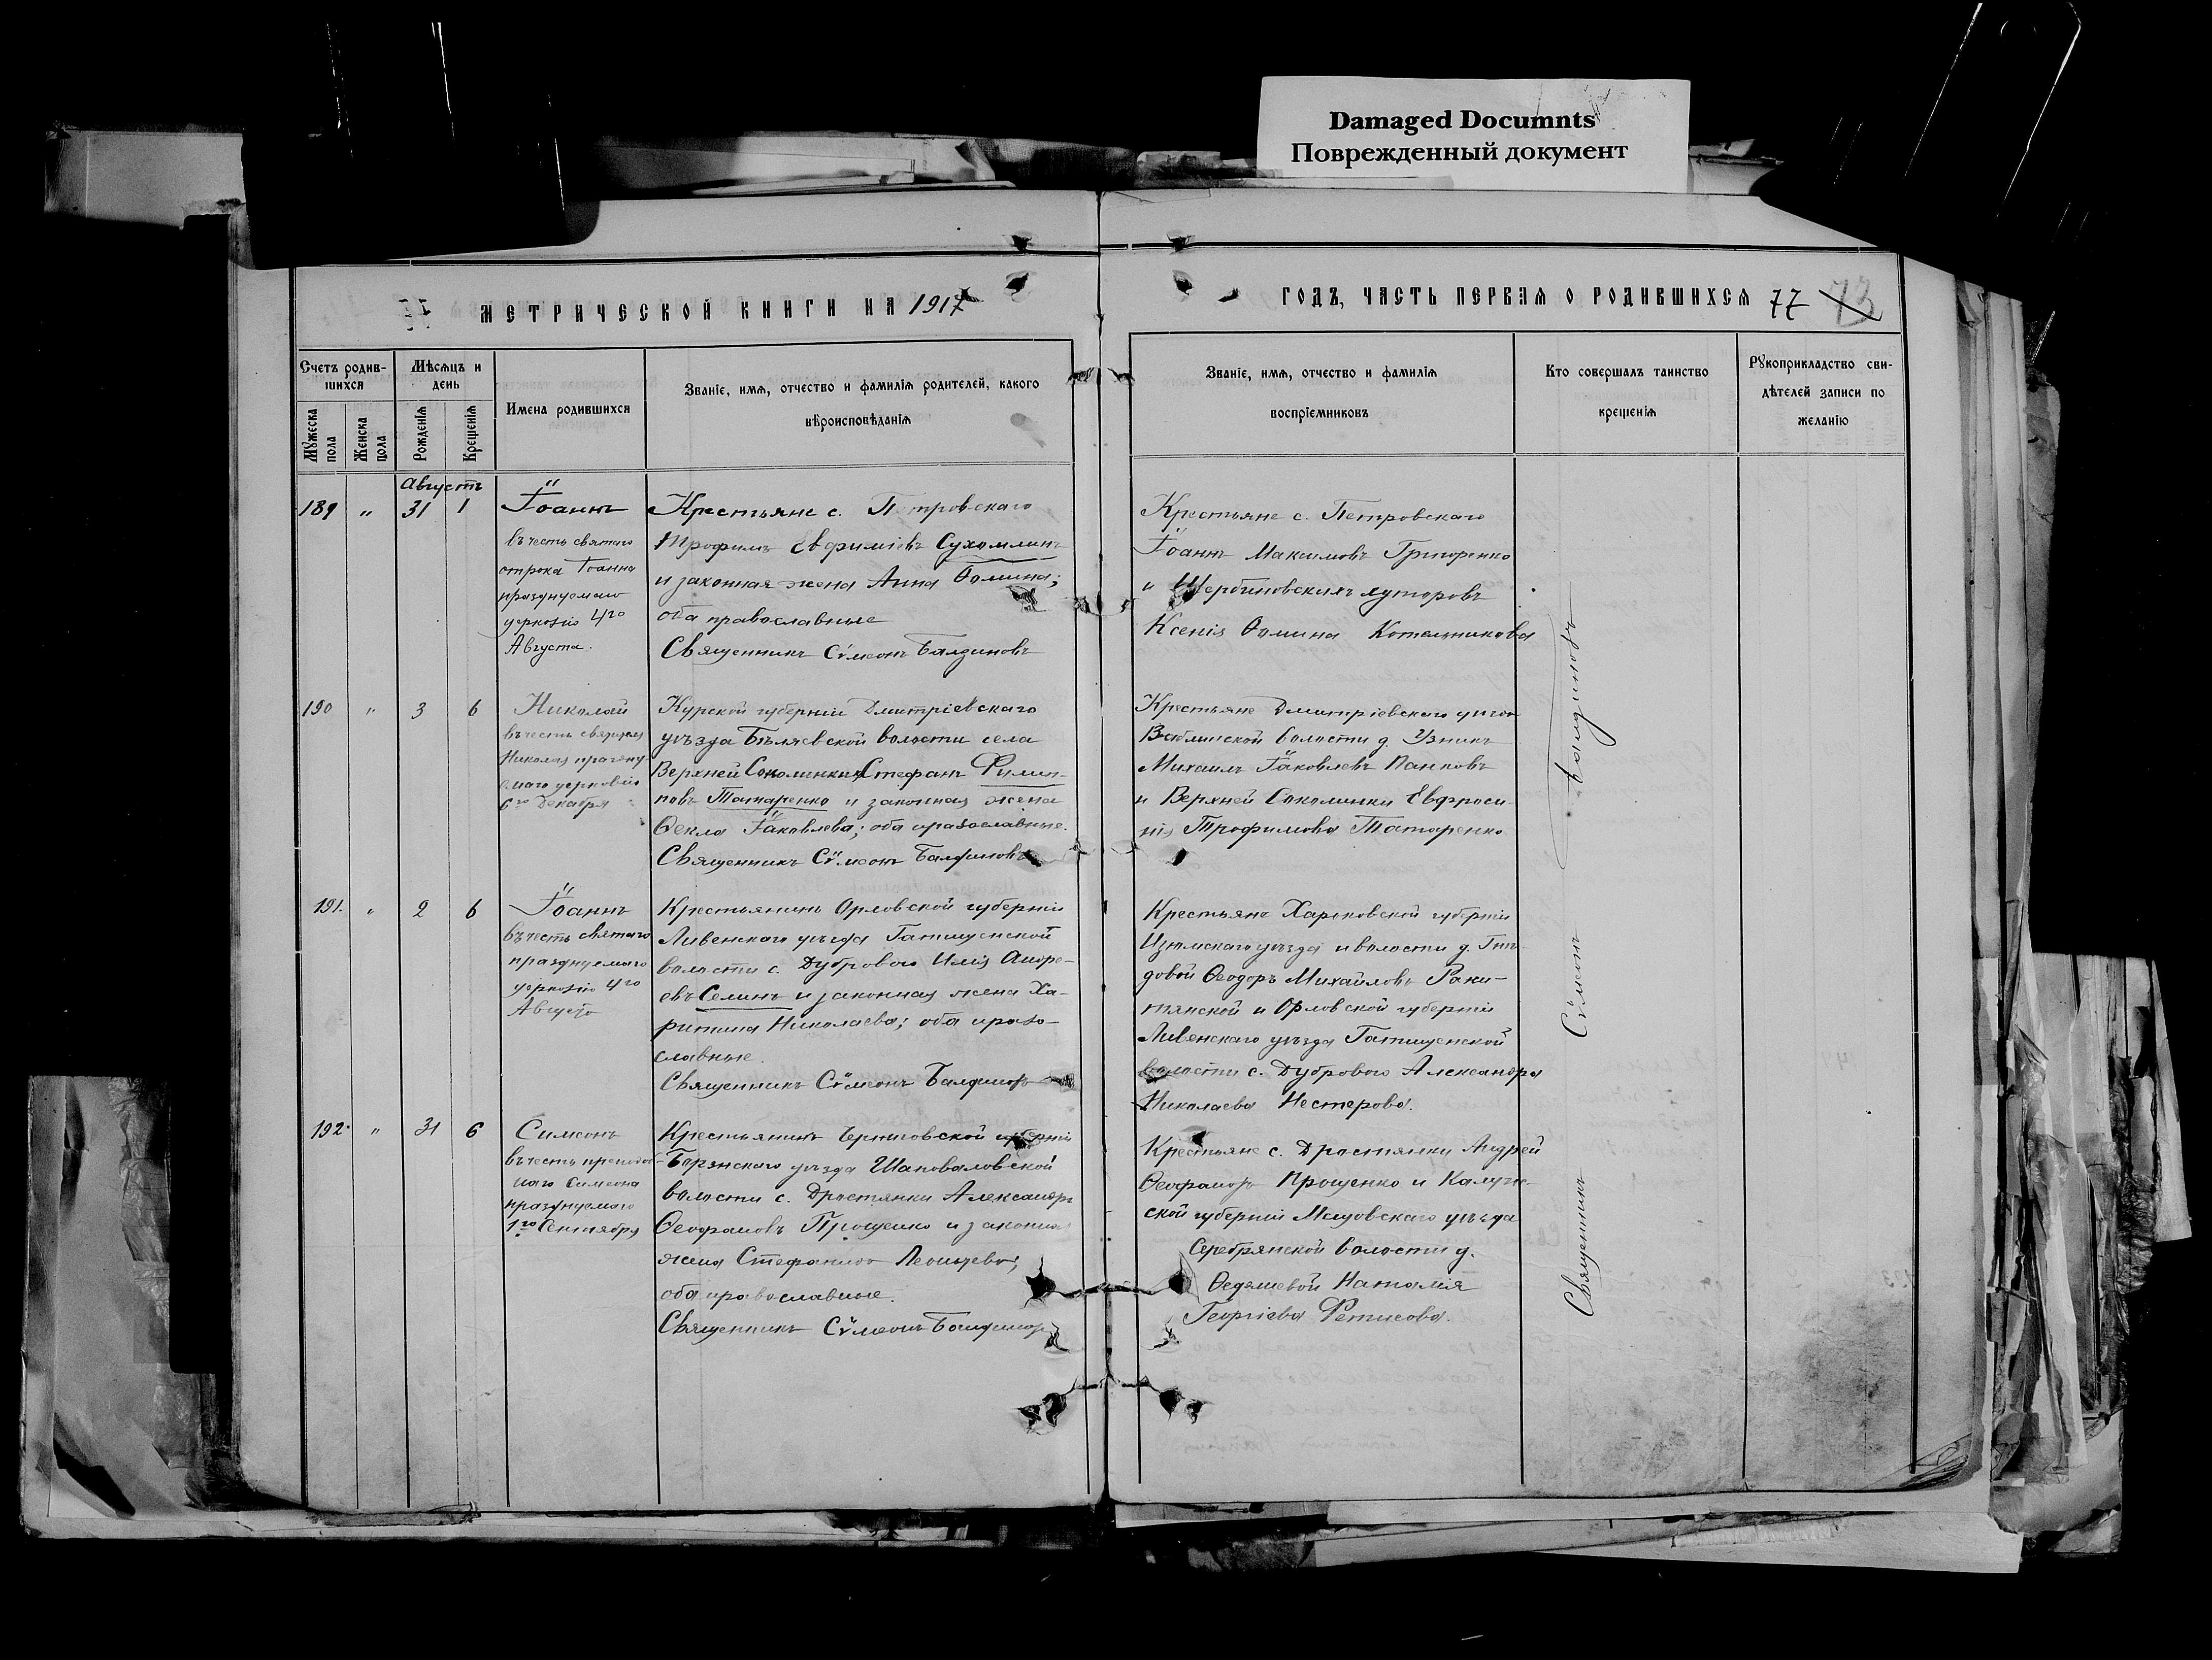 Damaged Documnts
Поврежденный документ
МЕТРИЧЕСКОЙ КНИГИ НА 1917
ГОДЪ, ЧАСТЬ ПЕРВАЯ О РОДИВШИХСЯ 77 73
Счетъ родив-
шихся
Мужеска пола
Женска пола
Мѣсяцъ и
день
Рожденія
Крещенія
Имена родившихся
Званіе, имя, отчество и фамилія родителей, какого
вѣроисповѣданія
Званіе, имя, отчество и фамилія
воспріемниковъ
Кто совершалъ таинство
крещенія
Рукоприкладство сви-
дѣтелей записи по
желанію
Августъ
189 " 31 1
Іоаннъ
въ честь святаго
отрока Іоанна
празднуемаго
церковію 4го
Августа.
Крестьяне с. Петровскаго
Трофимъ Евфиміевъ Сухомлинъ
и законная жена Анна Ѳомина;
оба православные
Священникъ Сѵмеонъ Балдиновъ
Крестьяне с. Петровскаго
Іоаннъ Максимовъ Григоренко
и Щербиновскихъ хуторовъ
Ксенія Ѳомина Котельникова
190 " 3 6
Николай
въ честь святителя
Николая праздну-
емаго церковію
6го Декабря
Курской губерніи Дмитріевскаго
уѣзда Бѣляевской волости села
Верхней Соколинки Стефанъ Филип-
повъ Татаренко и законная жена
Ѳекла Іаковлева; оба православные.
Священникъ Сѵмеонъ Балдиновъ
Крестьяне Дмитріевскаго уѣзда
волости д. Узникъ
Михаилъ Іаковлевъ Панковъ
и Верхней Соколинки Евфроси-
нія Трофимова Татаренко
191. " 2 6
Іоаннъ
въ честь святаго
празднуемаго
церковію 4го
Августа
Крестьянинъ Орловской губерніи
Ливенскаго уѣзда Гатищенской
волости с. Дуброваго Илія Андре-
евъ Селинъ и законная жена Ха-
ритина Николаева; оба право-
славные.
Священникъ Сѵмеонъ Балдиновъ
Крестьяне Харьковской губерніи
Изюмскаго уѣзда и волости д. Гни-
довой Ѳеодоръ Михайловъ Раки-
тянской и Орловской губерніи
Ливенскаго уѣзда Гатищенской
волости с. Дуброваго Александра
Николаева Нестерова.
192. " 31 6
Симеонъ
въ честь преподоб-
наго Симеона
празднуемаго
1го Сентября
Крестьянинъ Черниговской губерніи
Борзнскаго уѣзда Шаповаловской
волости с. Дростянки Александръ
Ѳеофановъ Прощенко и законная
жена Стефанида Леонтьева;
оба православные.
Священникъ Сѵмеонъ Балдиновъ
Крестьяне с. Дростянки Андрей
Ѳеофановъ Прощенко и Калуж-
ской губерніи Мещовскаго уѣзда
Серебрянской волости д.
Ѳедяшевой Наталія
Георгіева Фетисова.
Священникъ Сѵмеонъ Балдиновъ